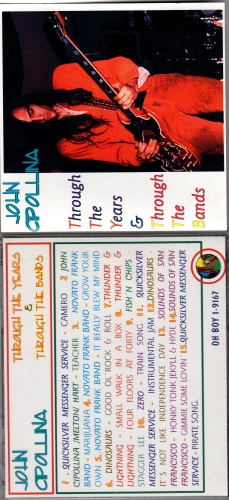 JOHN
CIPOLLINA
Through
The
Years
&
Through
The
Bands
JOHN
CIPOLLINA
THROUGH THE YEARS
&
THROUGH THE BANDS
1 - QUICKSILVER MESSENGER SERVICE - CAMERO 2 JOHN
CIPOLLINA /MELTON/ HART - TEACHER 3. NOVATO FRANK
BAND - MARIJUANA 4. NOVATO FRANK BAND - GROW YOUR
OWN 5. NOVATO FRANK BAND - IT REALLY BLEW MY MIND
6. DINOSAURS - GOOD OL ROCK & ROLL 7.THUNDER &
LIGHTNING - SMALL WALK IN A BOX 8. THUNDER &
LIGHTNING - FOUR FLOORS AT FORTY 9. FISH N CHIPS -
STAGGER LEE 10. ZERO - TRAIN SONG 11. QUICKSILVER
MESSENGER SERVICE - INSTRUMENTAL JAM 12.DINOSAURS -
IT'S NOT LIKE INDEPENDENCE DAY 13. SOUNDS OF SAN
FRANCISCO - HONKY TONK JEKYLL & HYDE 14.SOUNDS OF SAN
FRANCISCO - GIMMIE SOME LOVIN 15.QUICKSILVER MESSENGER
SERVICE - PIRATE SONG.
OH BOY 1-9167